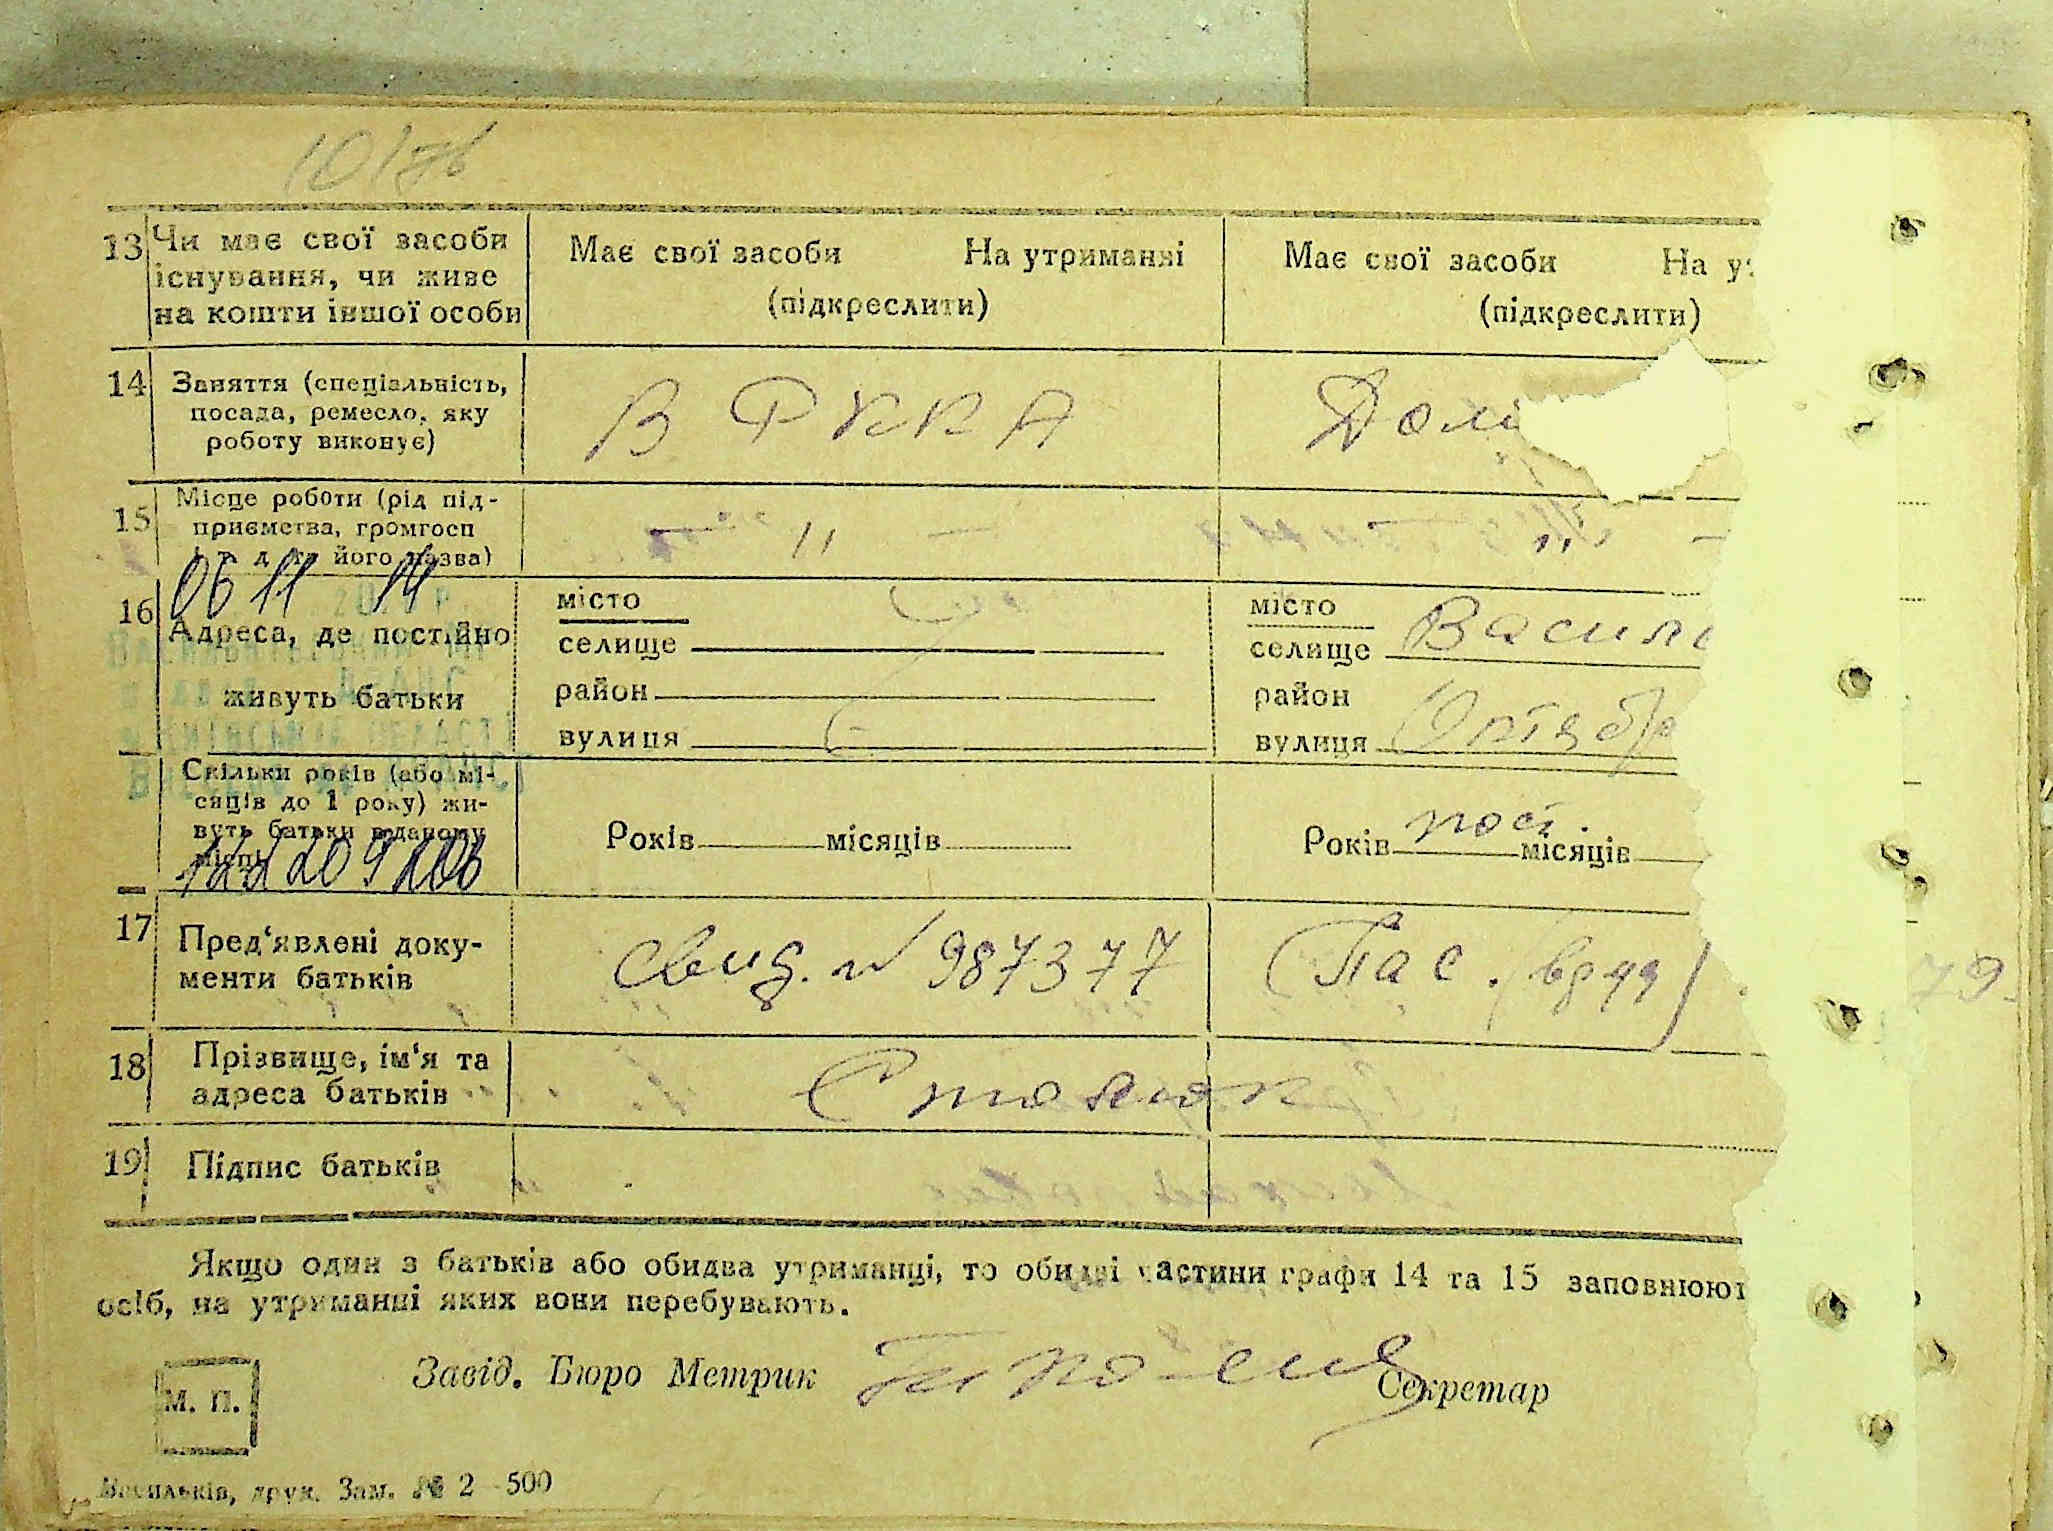 13 Чи має свої засоби існування, чи живе на кошти іншої особи
Має свої засоби На утриманні
(підкреслити)
Має свої засоби На ут
(підкреслити)
14 Заняття (спеціальність, посада, ремесло, яку роботу виконує)
В РККА
Домі
15 Місце роботи (рід підприємства, громгосп і т. д. та його назва)
— " —
— " —
06 11 14
20 р.
16 Адреса, де постійно живуть батьки
місто
селище
район
вулиця
місто
селище Василь
район
вулиця Октябр
Скільки років (або місяців до 1 року) живуть батьки в даному місці
Років місяців
Років пост. місяців
17 Пред'явлені документи батьків
Свид. № 987377
Пас.
79
18 Прізвище, ім'я та адреса батьків
Стоянок
19 Підпис батьків
Якщо один з батьків або обидва утриманці, то обидві частини графи 14 та 15 заповнюют
осіб, на утриманні яких вони перебувають.
Завід. Бюро Метрик
Секретар
М. П.
Васильків, друк. Зам. № 2 - 500